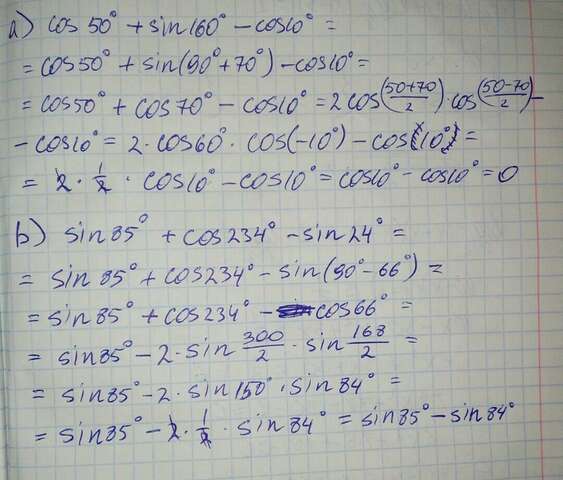 a) cos 50° + sin 160° - cos10° =
= cos50° + sin(90°+70°) - cos10° =
= cos50° + cos70° - cos10° = 2 cos(50+70/2) cos(50-70/2) -
- cos10° = 2 · cos60° · cos(-10°) - cos(10°) =
= 2 · 1/2 · cos10° - cos10° = cos10° - cos10° = 0
b) sin 85° + cos234° - sin24° =
= sin 85° + cos234° - sin(90° - 66°) =
= sin 85° + cos234° - cos66° =
= sin85° - 2 · sin 300/2 · sin 168/2 =
= sin85° - 2 · sin 150° · sin 84° =
= sin85° - 2 · 1/2 · sin 84° = sin85° - sin84°